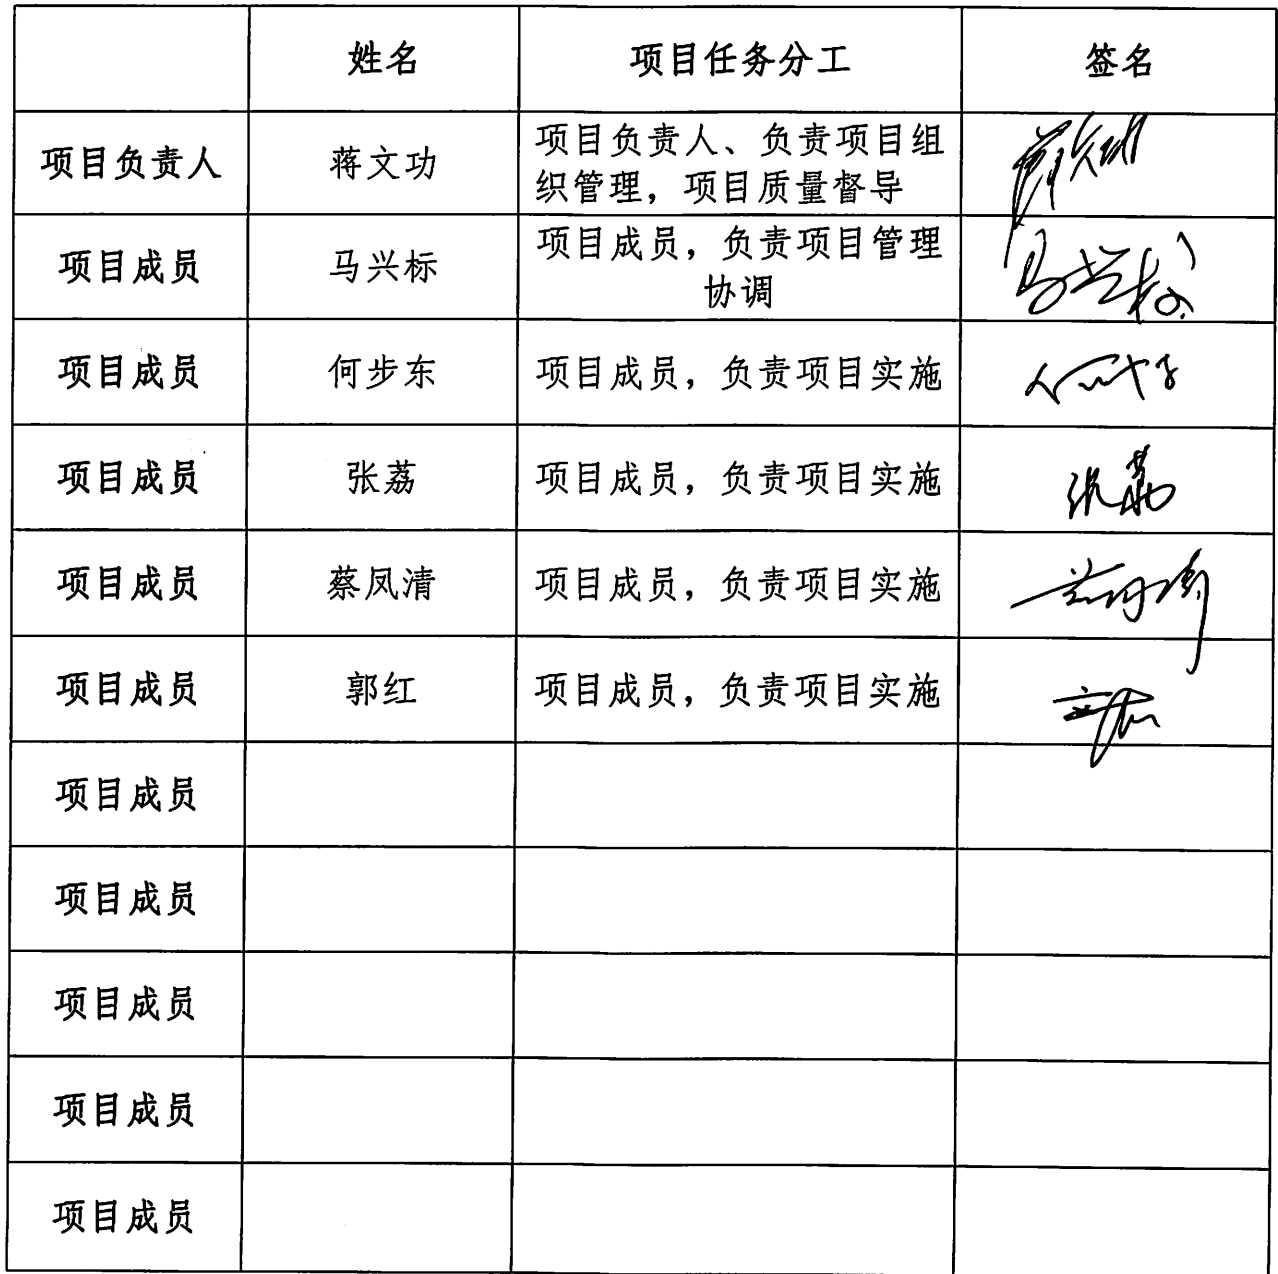 姓名 项目任务分工 签名
项目负责人 蒋文功 项目负责人、负责项目组
织管理，项目质量督导
项目成员 马兴标 项目成员，负责项目管理
协调 马兴标
项目成员 何步东 项目成员，负责项目实施
项目成员 张荔 项目成员，负责项目实施 张荔
项目成员 蔡凤清 项目成员，负责项目实施
项目成员 郭红 项目成员，负责项目实施
项目成员
项目成员
项目成员
项目成员
项目成员